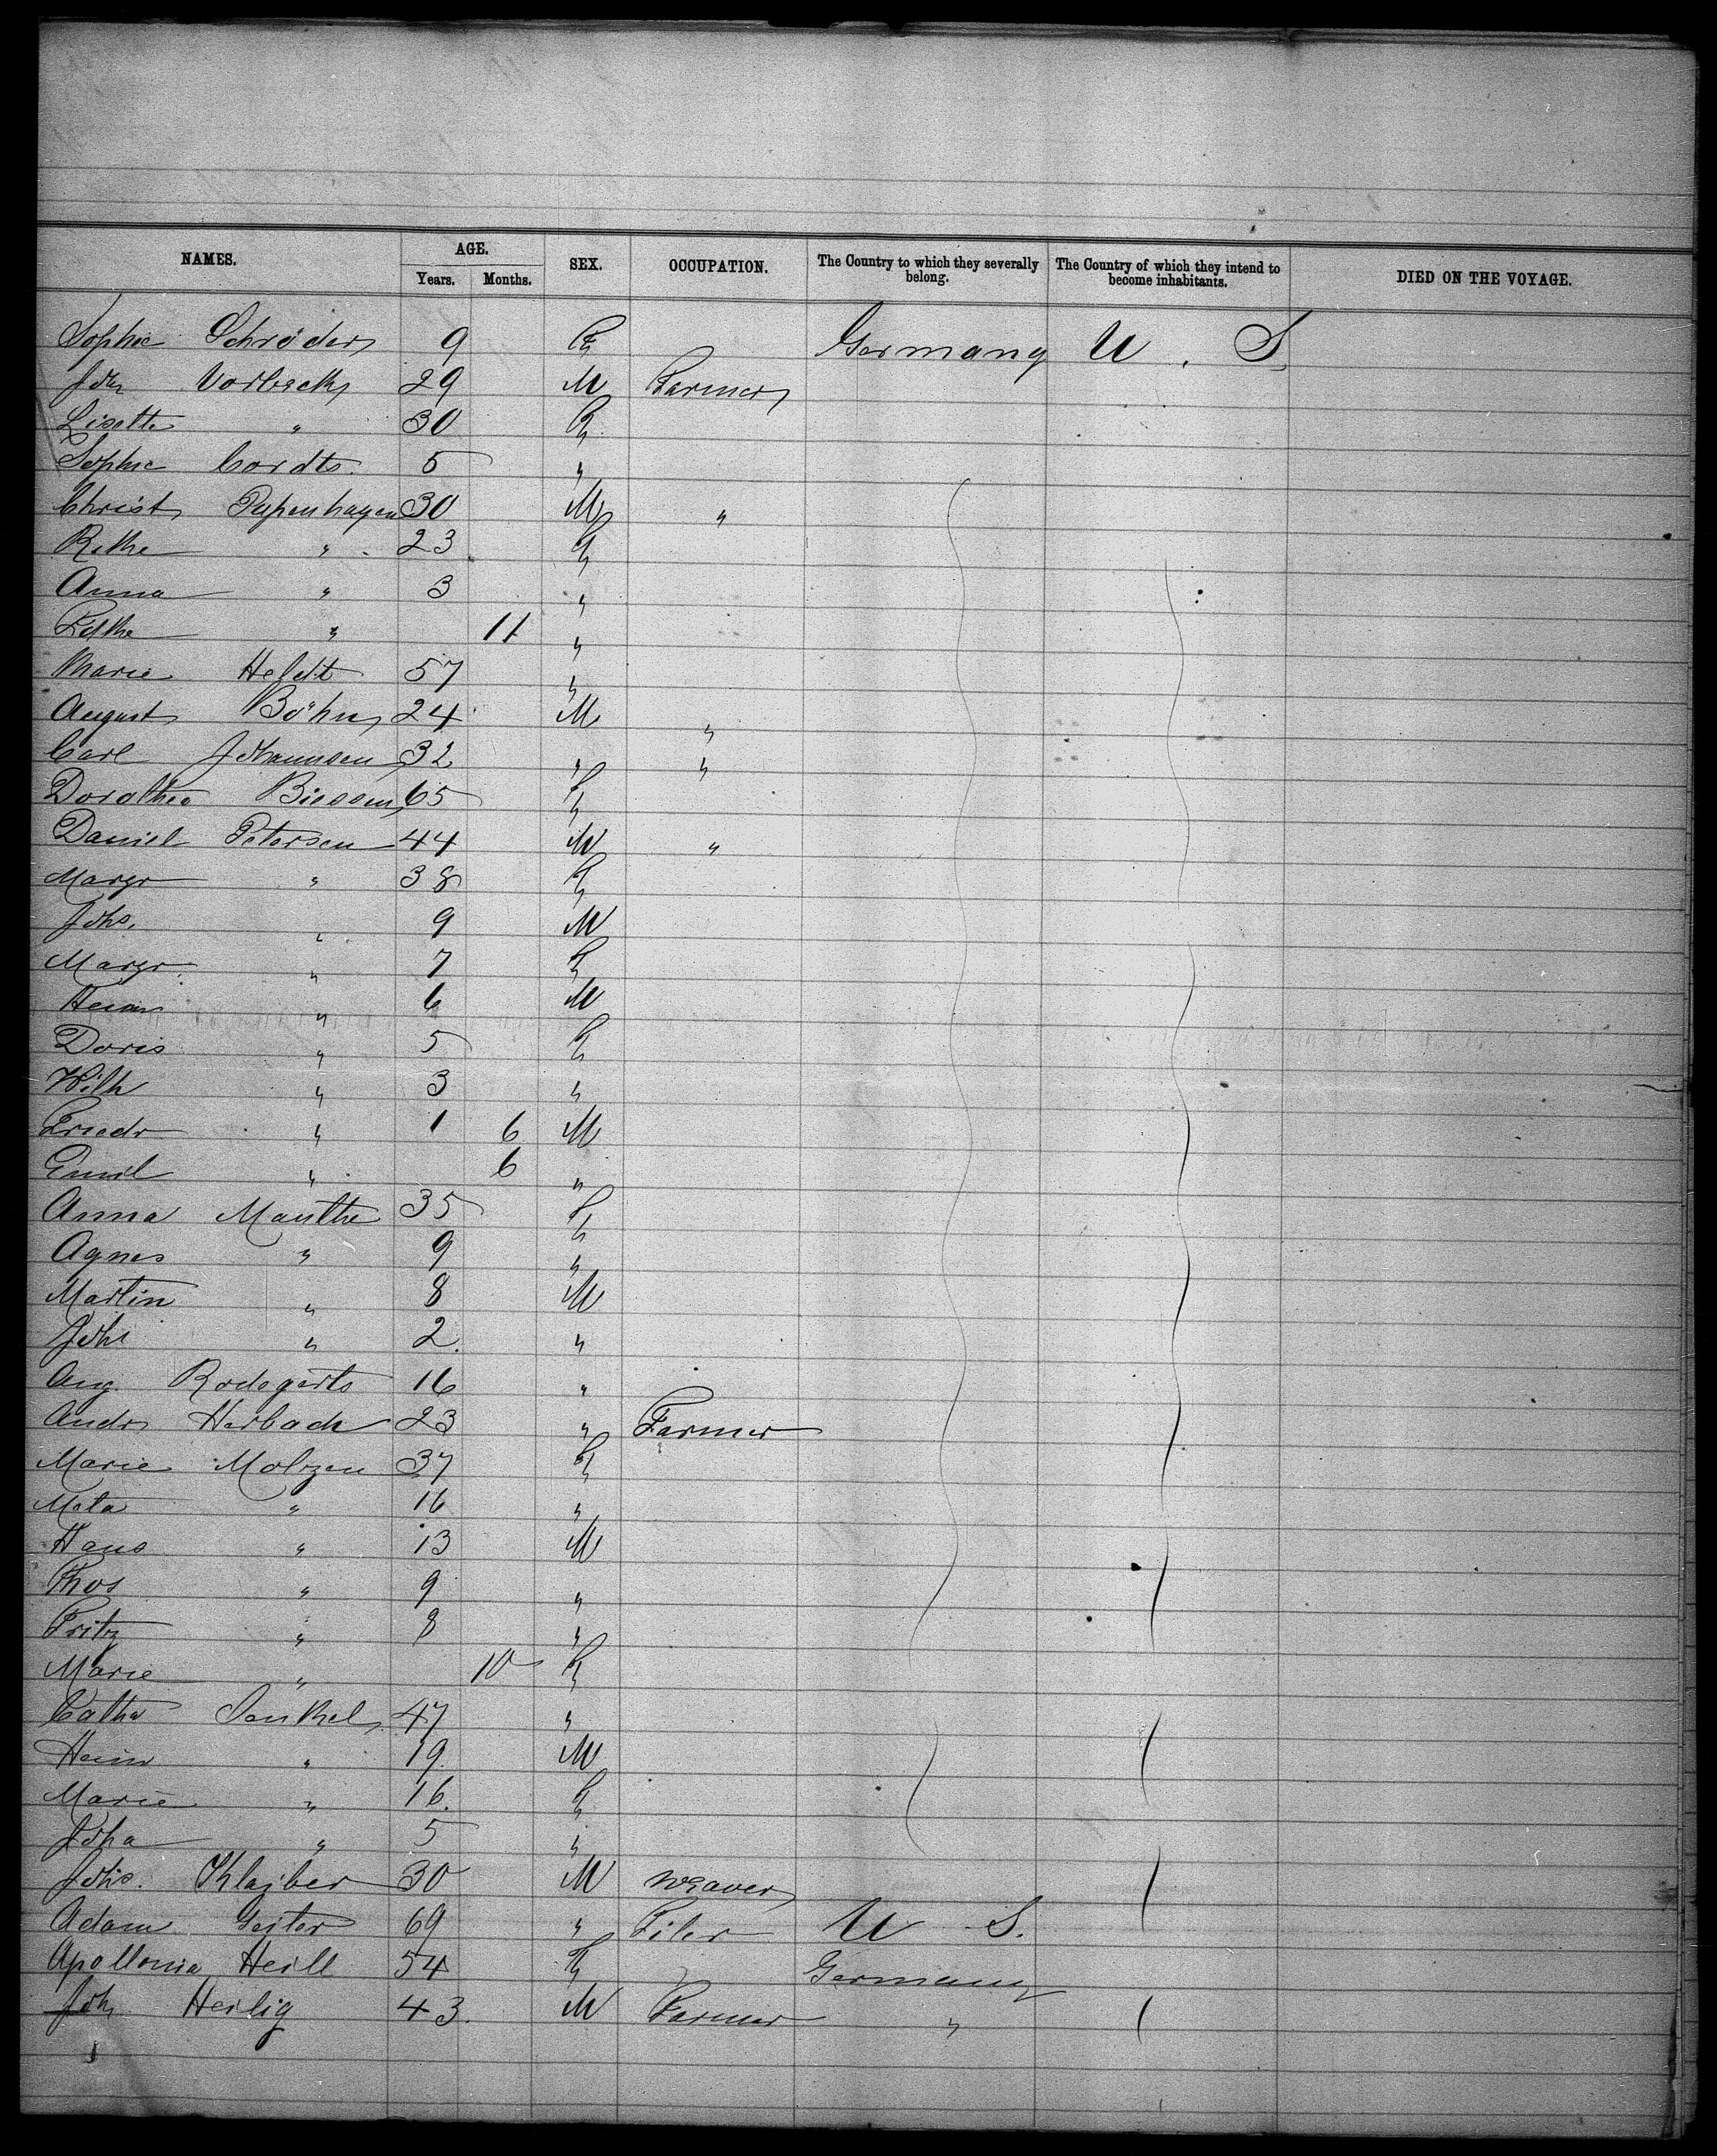 NAMES. AGE. SEX. OCCUPATION. The Country to which they severally belong. The Country of which they intend to become inhabitants. DIED ON THE VOYAGE.
Years. Months.
Sophie Schröder 9 F Germany U. S.
Joh Vorbeck 29 M Farmer
Lisette " 30 F
Sophie Cordts 5 "
Christ Papenhagen 30 M "
Rike " 23 F
Anna " 3 "
" 11 "
Marie Heldt 57 "
August Böhn 24 M "
Carl Johannsen 32 " "
Dorothea Biessen 65 F
Daniel Petersen 44 M "
Margr " 38 F
Johs. " 9 M
Margr. " 7 F
Heinr " 6 M
Doris " 5 F
Wilh " 3 "
Friedr " 1 6 M
Emil " 6 "
Anna Manthe 35 F
Agnes " 9 "
Martin " 8 M
Johs " 2 "
Aug. Rodegerts 16 "
Andr Herbach 23 " Farmer
Marie Molzen 37 F
Meta " 16 "
Hans " 13 M
Thos " 9 "
Fritz " 8 "
Marie " 10 F
Catha 47 "
Heinr " 19 M
Marie " 16 F
Joha " 5 "
Johs. Klaiber 30 M Weaver
Adam Geiter 69 " Filer U S.
Apollonia Heill 54 F Germany
Joh Heilig 43 M Farmer "